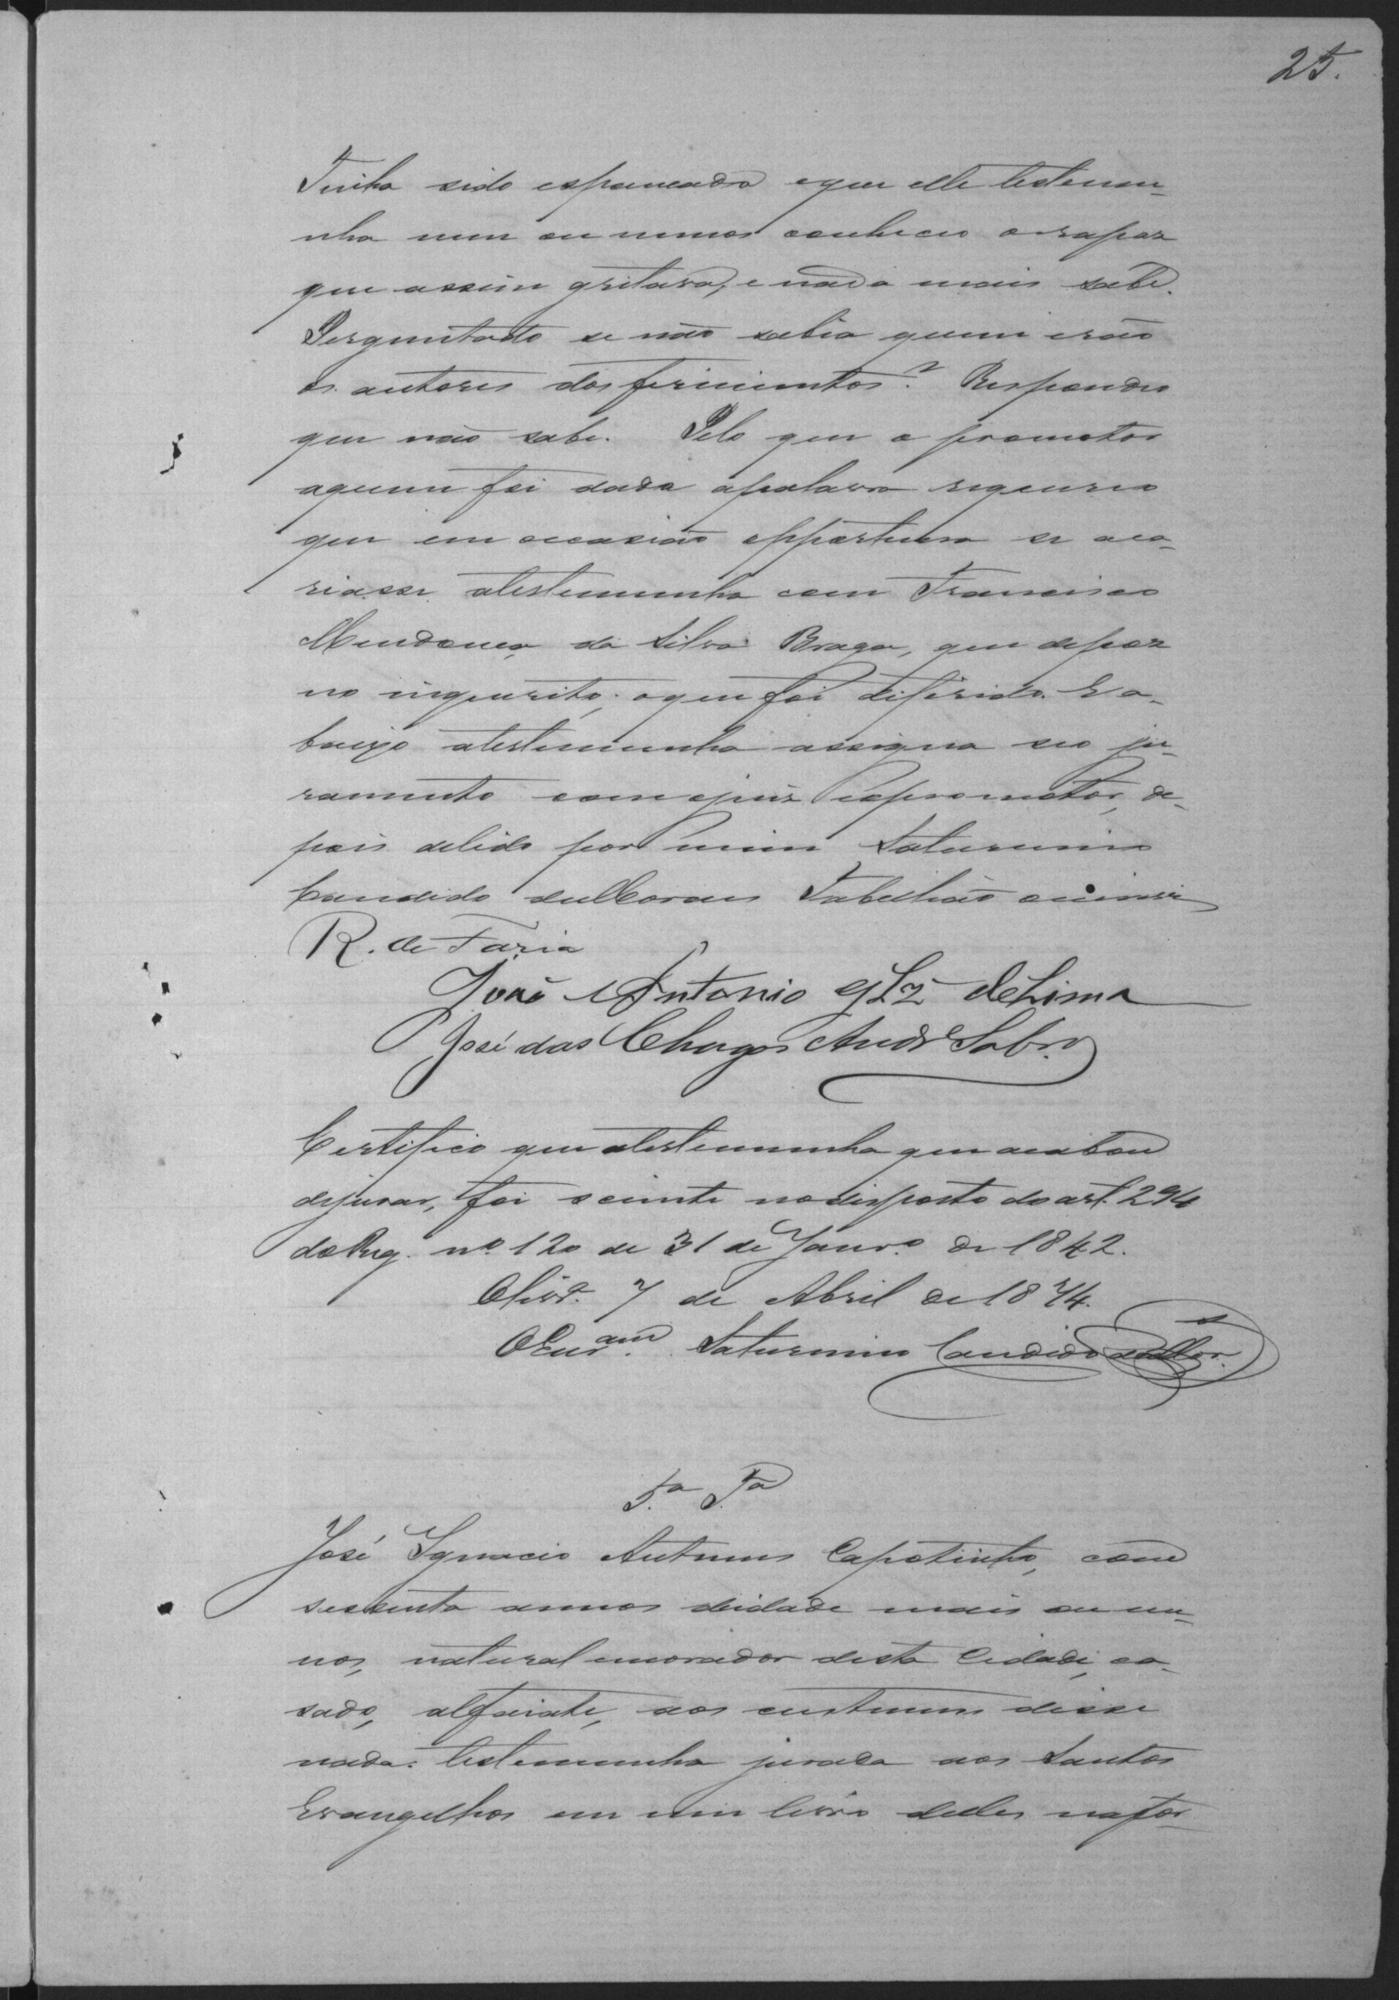 25.
Tinha sido espancado eque elle testemu-
nha nem ao menos conheceo o rapaz
que assim gritava, e nada mais sabe.
Perguntado se não sabia quem erão
os autores dos ferimentos? Respondeo
que não sabe. Pelo que o promotor
aquem foi dada apalavra requereo
que em occasião opportuna se aca-
riasse atestemunha com Francisco
Mendonça da Silva Braga, que depoz
no inquerito; oque foi diferido. E a-
baixo atestemunha assigna seo ju-
ramento com ojuiz eopromotor, de-
pois delido por mim Saturnino
Candido deMoraes Tabellião oescrevi
R. de Faria
João Antonio glz deLima
José das Chagas Andr Sobr.o
Certifico que atestemunha que acabou
dejurar, foi sciente nodisposto do art. 294
do Reg. nº 120 de 31 de Janr.o de 1842.
7 de Abril de 1874.
Saturnino Candido deMor.
5.a T.a
José Ignacio Antunes Capotinho, com
sessenta annos deidade mais ou me-
nos, natural emorador desta Cidade, ca-
sado, alfaiate, aos custumes disse
nada: testemunha jurada aos Santos
Evangelhos em um livro delles napor-